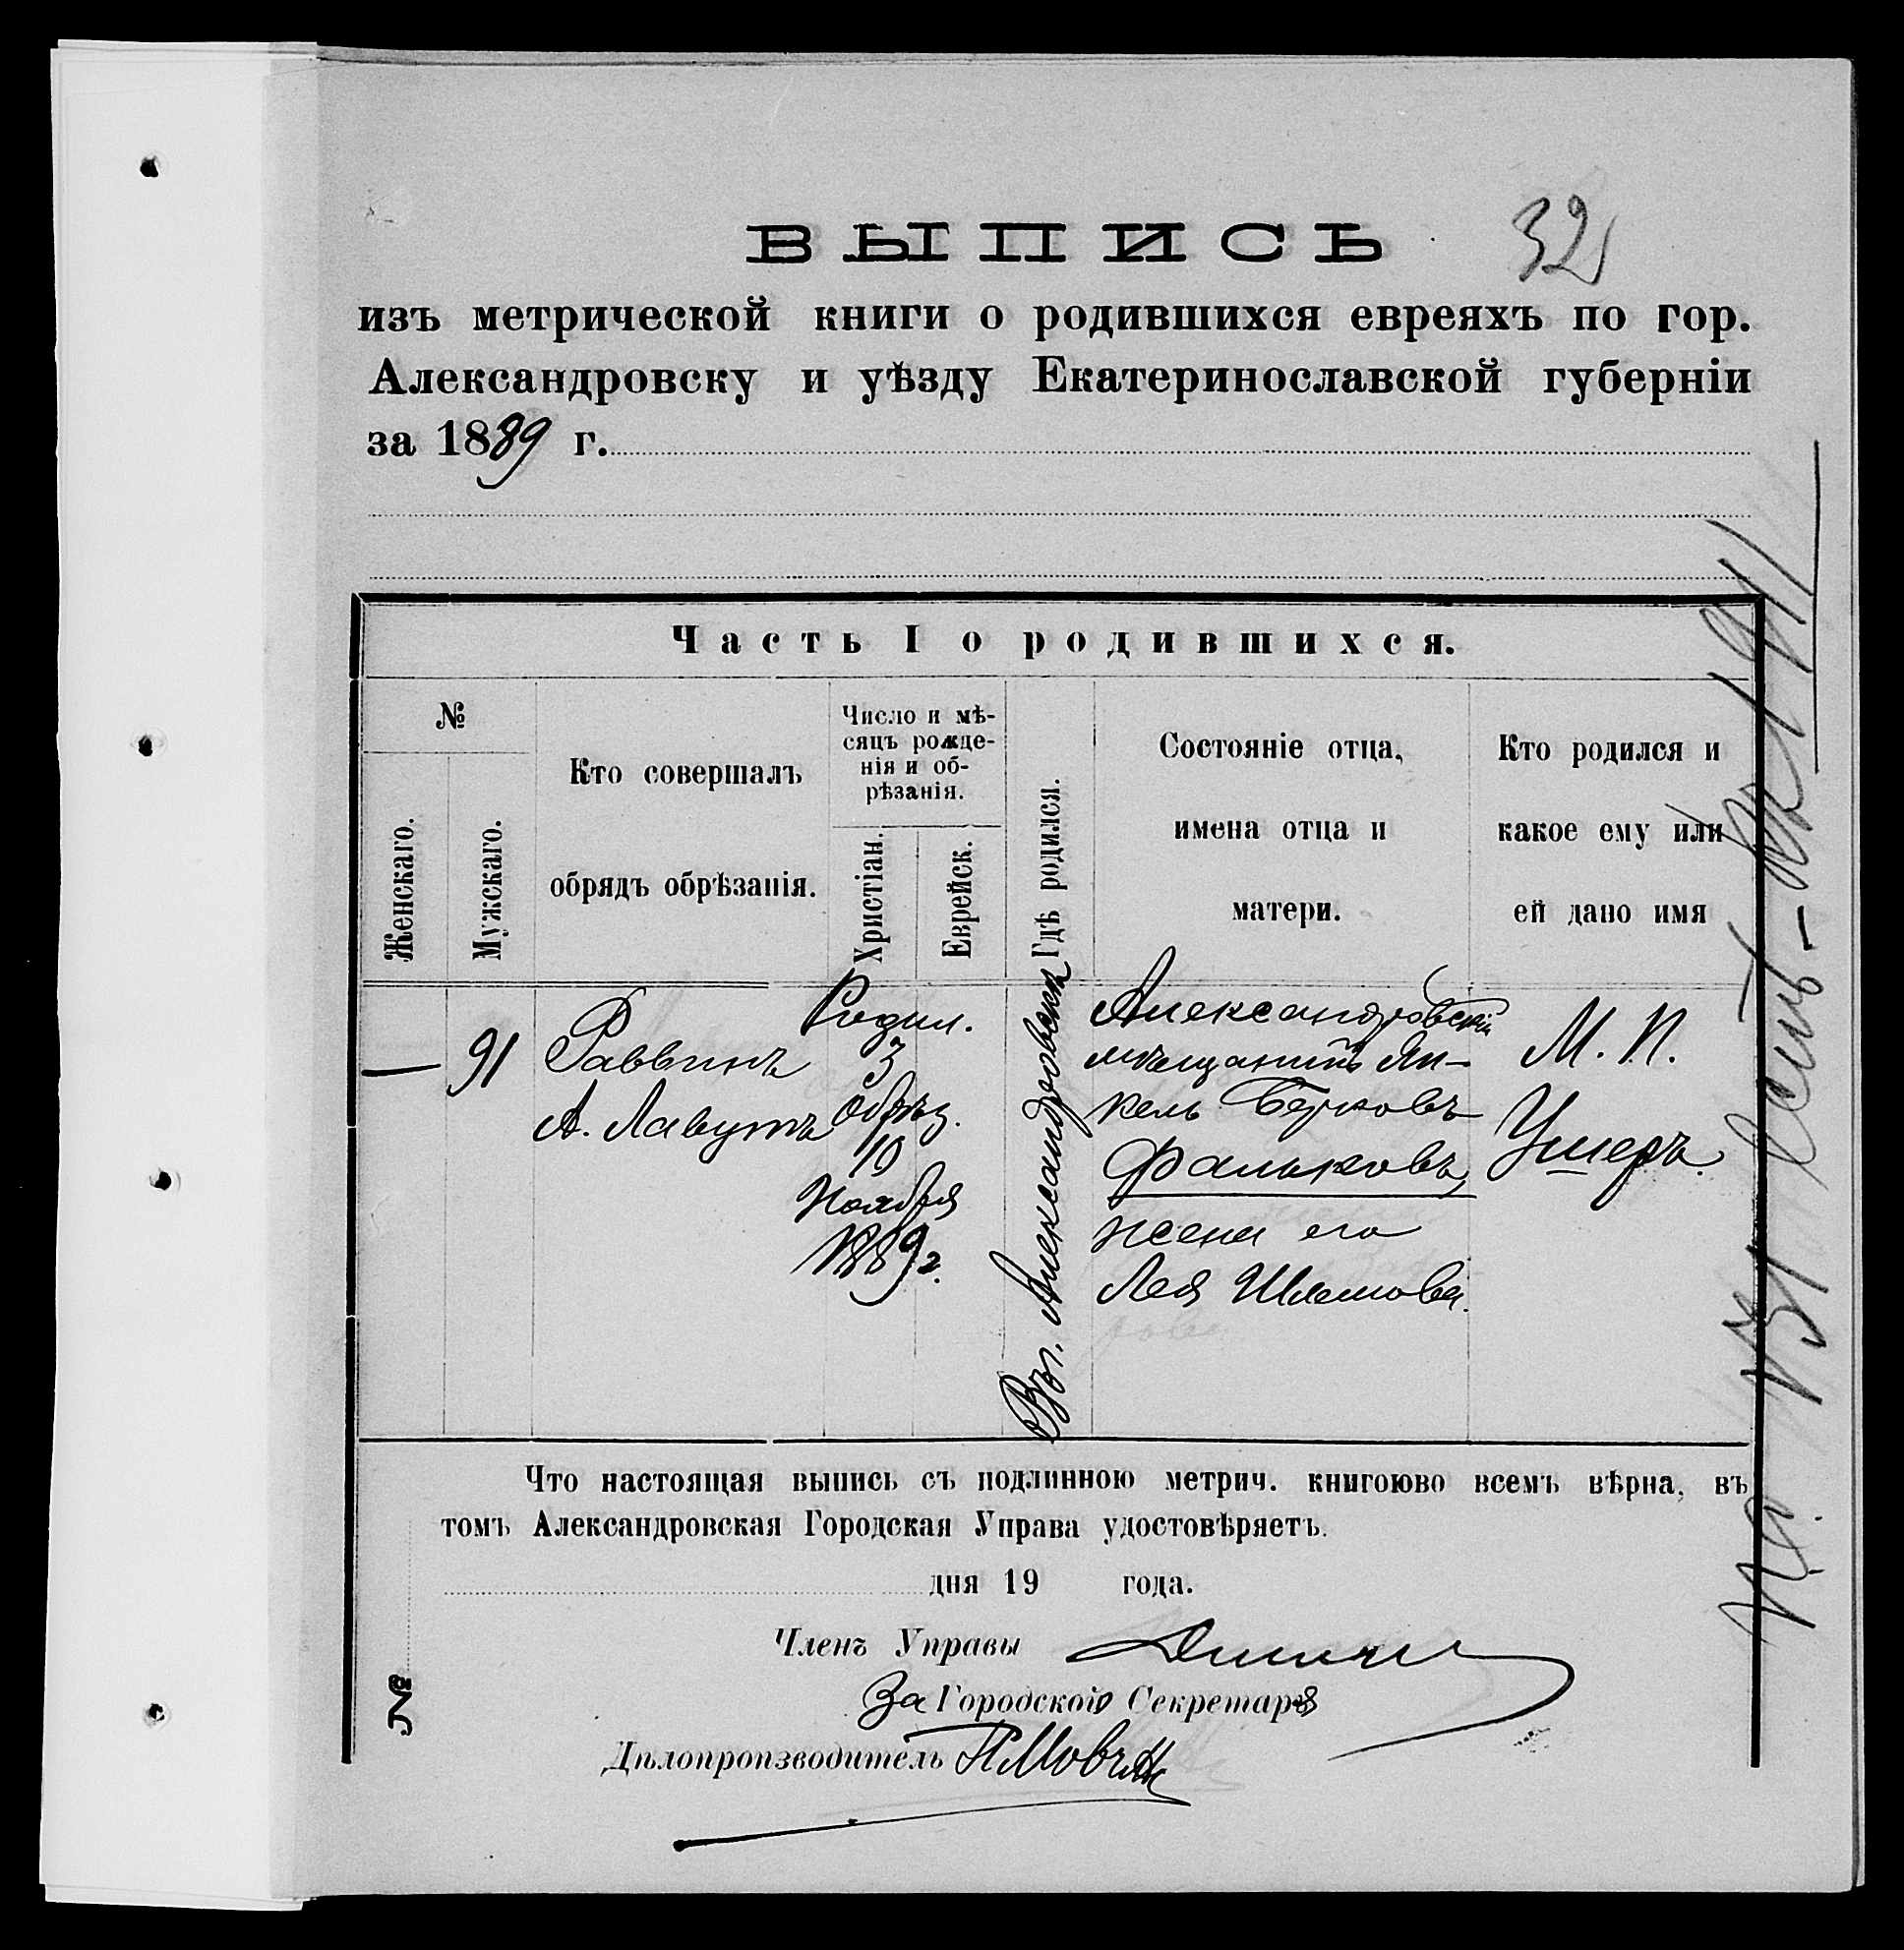 ВЫПИСЬ
32
изъ метрической книги о родившихся евреяхъ по гор.
Александровску и уѣзду Екатеринославской губерніи
за 1889 г.
Часть I о родившихся.
№
Женскаго.
Мужскаго.
Кто совершалъ
обрядъ обрѣзанія.
Число и мѣ-
сяцъ рожде-
нія и об-
рѣзанія.
Христіан.
Еврейск.
Гдѣ родился.
Состояніе отца,
имена отца и
матери.
Кто родился и
какое ему или
ей дано имя
—
91
Раввинъ
А. Лавутъ
Родил.
3
обрѣз.
10
Ноября
1889 г.
Въ г. Александровскѣ
Александровскій
мѣщанинъ Ян-
кель Берковъ
Фальковъ,
жена его
Лея Шлемова.
М. П.
Ушеръ.
1911
Что настоящая выпись съ подлинною метрич. книгоюво всемъ вѣрна, въ
томъ Александровская Городская Управа удостовѣряетъ.
дня 19 года.
Членъ Управы
За Городского Секретаря
Дѣлопроизводитель
№